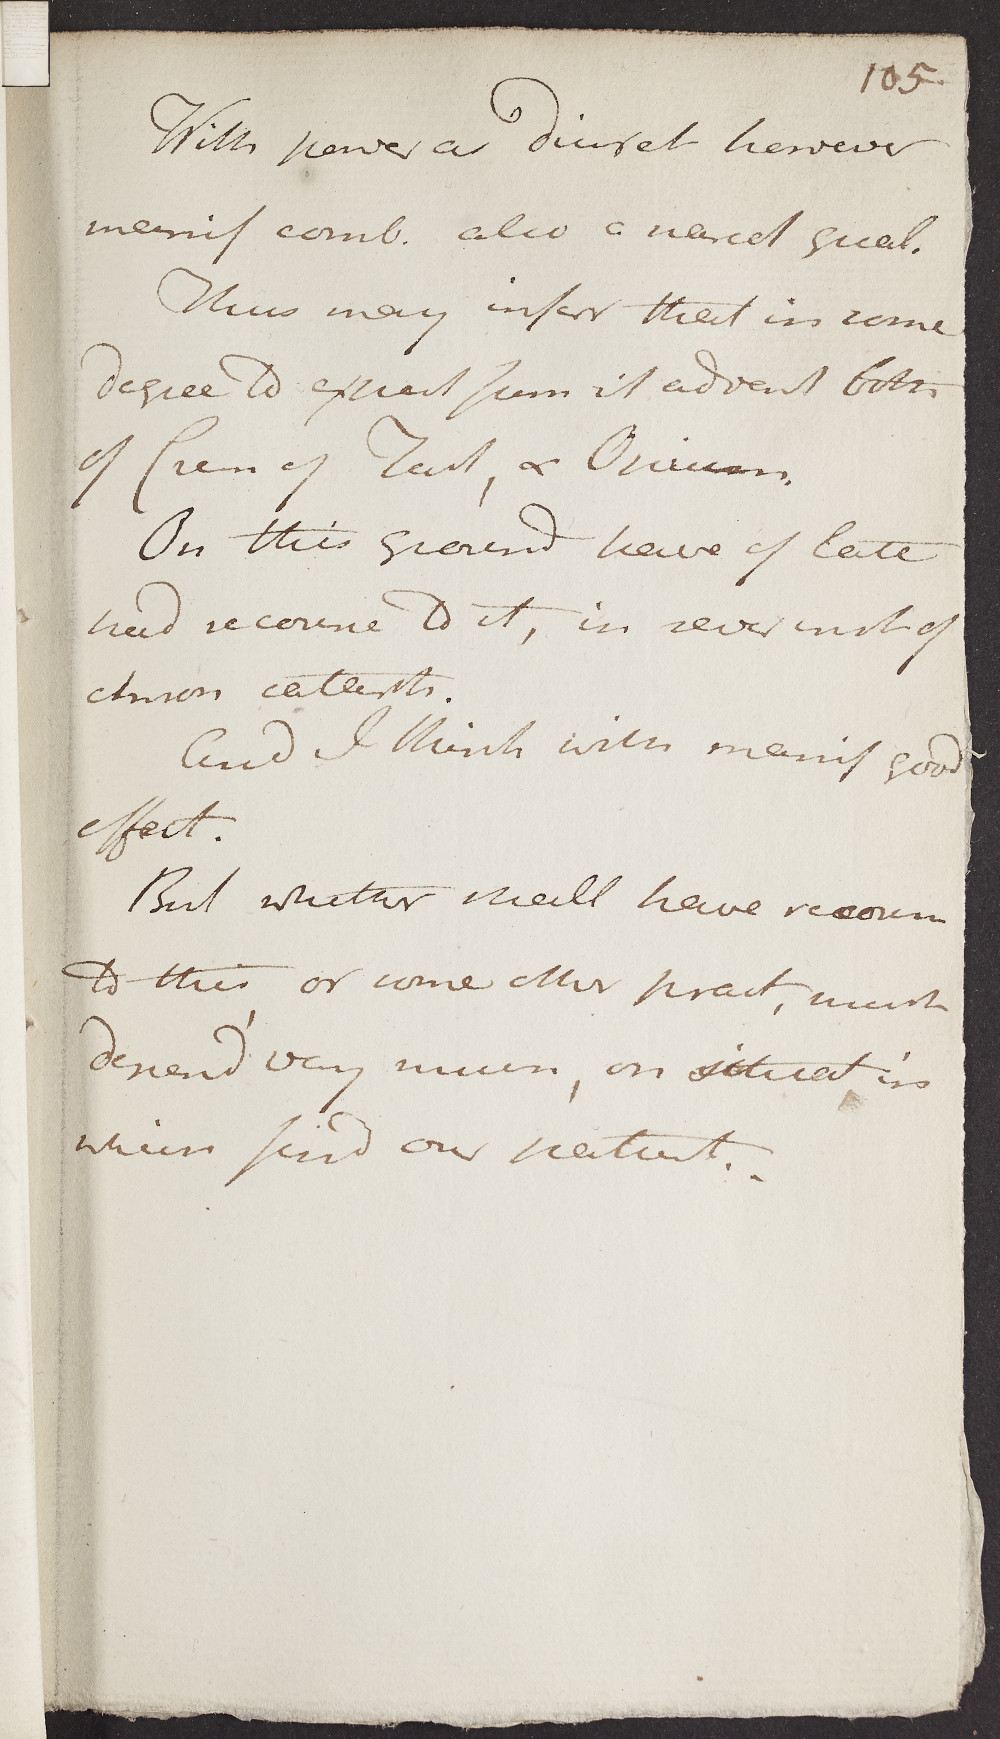 105
With power as diuret however
manif comb. also a narcot qual.
Thus may inferr that in some
degree to expect from it advant both
of Crem of Tart, & Opium.
On this ground have of late
had recourse to it, in sever inst of
chron catarrh.
And I think with manif good
effect.
But whether shall have recours
to this, or some other pract, must
depend very much, on situat in
which find our patient.